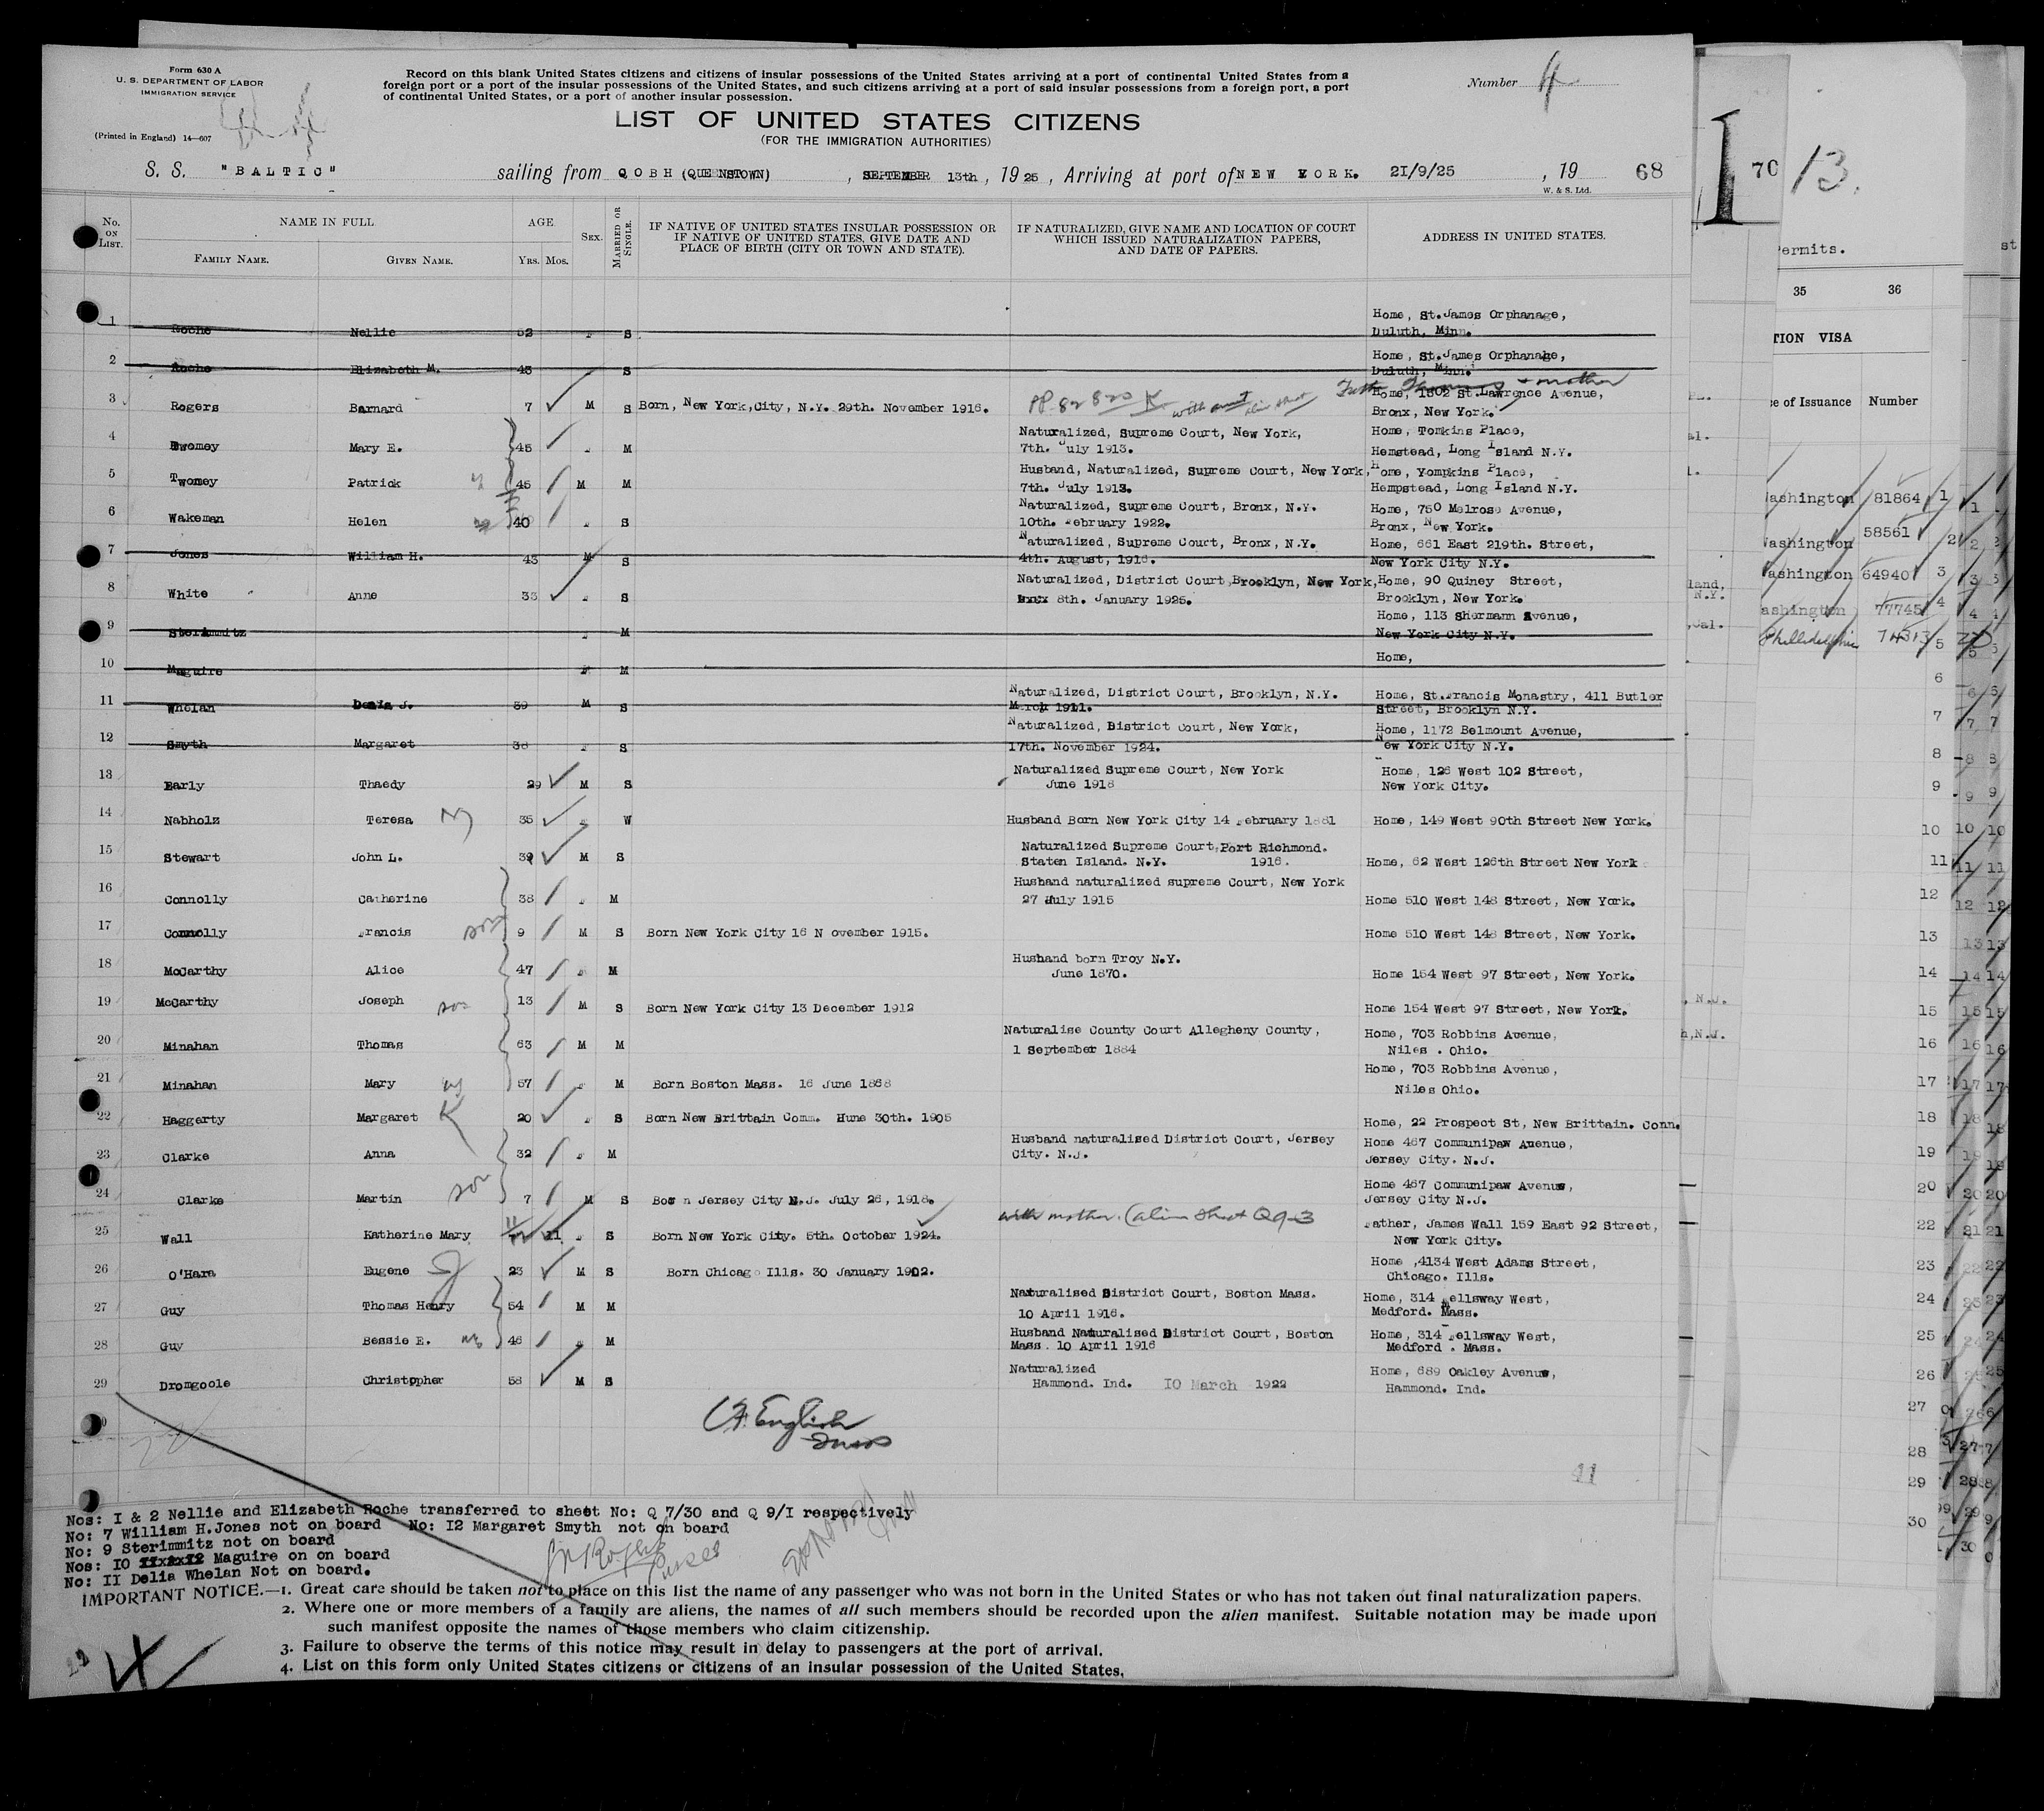 Form 630 A
U. S. DEPARTMENT OF LABOR
IMMIGRATION SERVICE
(Printed in England) 14—607
Record on this blank United States citizens and citizens of insular possessions of the United States arriving at a port of continental United States from a
foreign port or a port of the insular possessions of the United States, and such citizens arriving at a port of said insular possessions from a foreign port, a port
of continental United States, or a port of another insular possession.
Number 4
LIST OF UNITED STATES CITIZENS
(FOR THE IMMIGRATION AUTHORITIES)
S. S. "BALTIC" sailing from QOBH (QUEENSTOWN), SEPTEMBER 13th, 1925, Arriving at port of NEW YORK. 21/9/25, 19 68
W. & S. Ltd.
No. ON LIST. NAME IN FULL AGE SEX. MARRIED OR SINGLE. IF NATIVE OF UNITED STATES INSULAR POSSESSION OR IF NATIVE OF UNITED STATES, GIVE DATE AND PLACE OF BIRTH (CITY OR TOWN AND STATE). IF NATURALIZED, GIVE NAME AND LOCATION OF COURT WHICH ISSUED NATURALIZATION PAPERS, AND DATE OF PAPERS. ADDRESS IN UNITED STATES.
FAMILY NAME. GIVEN NAME. YRS. MOS.
1 Roche Nellie 52 S Home, St.James Orphanage,
Duluth, Minn.
2 Roche Elizabeth M. 43 S Home, St.James Orphanage,
Duluth, Minn.
PP 82820 K with aunt + mother
3 Rogers Barnard 7 M S Born, New York,City, N.Y. 29th. November 1916. Home, 1302 St.Lawrence Avenue,
Bronx, New York.
4 Twomey Mary E. 45 M Naturalized, Supreme Court, New York, Home, Tomkins Place,
7th. July 1913. Hemstead, Long Island N.Y.
5 Twomey Patrick 45 M M Husband, Naturalized, Supreme Court, New York, Home, Yompkins Place,
7th. July 1913. Hempstead, Long Island N.Y.
6 Wakeman Helen 40 S Naturalized, Supreme Court, Bronx, N.Y. Home, 750 Melrose Avenue,
10th. February 1922. Bronx, New York.
7 Jones William H. 43 M S Naturalized, Supreme Court, Bronx, N.Y. Home, 661 East 219th. Street,
4th. August, 1916. New York City N.Y.
8 White Anne 33 S Naturalized, District Court,Brooklyn, New York, Home, 90 Quiney Street,
8th. January 1925. Brooklyn, New York.
9 Sterimmitz M Home, 113 Shermann Avenue,
New York City N.Y.
10 Maguire M Home,
11 Whelan Delia J. 39 M S Naturalized, District Court, Brooklyn, N.Y. Home, St.Francis Monastry, 411 Butler
March 1911. Street, Brooklyn N.Y.
12 Smyth Margaret 36 S Naturalized, District Court, New York, Home, 1172 Belmount Avenue,
17th. November 1924. New York City N.Y.
13 Early Thaedy 29 M S Naturalized Supreme Court, New York Home, 126 West 102 Street,
June 1918 New York City.
14 Nabholz Teresa 35 W Husband Born New York City 14 February 1881 Home, 149 West 90th Street New York.
15 Stewart John L. 39 M S Naturalized Supreme Court,Port Richmond.
Staten Island. N.Y. 1916. Home, 62 West 126th Street New York
16 Connolly Catherine 38 M Husband naturalized supreme Court, New York
27 July 1915 Home 510 West 148 Street, New York.
17 Connolly Francis son 9 M S Born New York City 16 N ovember 1915. Home 510 West 148 Street, New York.
18 McCarthy Alice 47 M Husband born Troy N.Y.
June 1870. Home 154 West 97 Street, New York.
19 McCarthy Joseph son 13 M S Born New York City 13 December 1912 Home 154 West 97 Street, New York.
20 Minahan Thomas 63 M M Naturalise County Court Allegheny County, Home, 703 Robbins Avenue,
1 September 1884 Niles . Ohio.
21 Minahan Mary 57 M Born Boston Mass. 16 June 1868 Home, 703 Robbins Avenue,
Niles Ohio.
22 Haggerty Margaret 20 S Born New Brittain Comm. Hune 30th. 1905 Home, 22 Prospect St, New Brittain. Conn.
23 Clarke Anna 32 M Husband naturalised District Court, Jersey Home 467 Communipaw Auenue,
City. N.J. Jersey City. N.J.
24 Clarke Martin son 7 M S Born Jersey City N.J. July 26, 1918. Home 467 Communipaw Avenue,
Jersey City N.J.
with mother. (alien sheet Q9-3
25 Wall Katherine Mary 11 S Born New York City. 5th. October 1924. Father, James Wall 159 East 92 Street,
New York City.
26 O'Hara Eugene 23 M S Born Chicago Ills. 30 January 1902. Home ,4134 West Adams Street,
Chicago. Ills.
27 Guy Thomas Henry 54 M M Naturalised District Court, Boston Mass. Home, 314 Fellsway West,
10 April 1916. Medford. Mass.
28 Guy Bessie E. 46 M Husband Naturalised District Court, Boston Home, 314 Fellsway West,
Mass. 10 April 1916 Medford . Mass.
29 Dromgoole Christopher 58 M S Naturalized Home, 689 Oakley Avenue,
Hammond. Ind. 10 March 1922 Hammond. Ind.
English
41
Nos: I & 2 Nellie and Elizabeth Roche transferred to sheet No: Q 7/30 and Q 9/I respectively
No: 7 William H.Jones not on board No: I2 Margaret Smyth not on board
No: 9 Sterimmitz not on board
Nos: IO Maguire on on board
No: II Delia Whelan Not on board.
IMPORTANT NOTICE.—1. Great care should be taken not to place on this list the name of any passenger who was not born in the United States or who has not taken out final naturalization papers.
2. Where one or more members of a family are aliens, the names of all such members should be recorded upon the alien manifest. Suitable notation may be made upon
such manifest opposite the names of those members who claim citizenship.
3. Failure to observe the terms of this notice may result in delay to passengers at the port of arrival.
4. List on this form only United States citizens or citizens of an insular possession of the United States.
70
13.
ermits.
35 36
TION VISA
e of Issuance Number
ashington 81864 1
ashington 58561 2
ashington 64940 3
ashington 77745 4
Philledelphia 74313 5
6
7
8
9
10
11
12
13
14
15
16
17
18
19
20
22
23
24
25
26
27
28
29
30